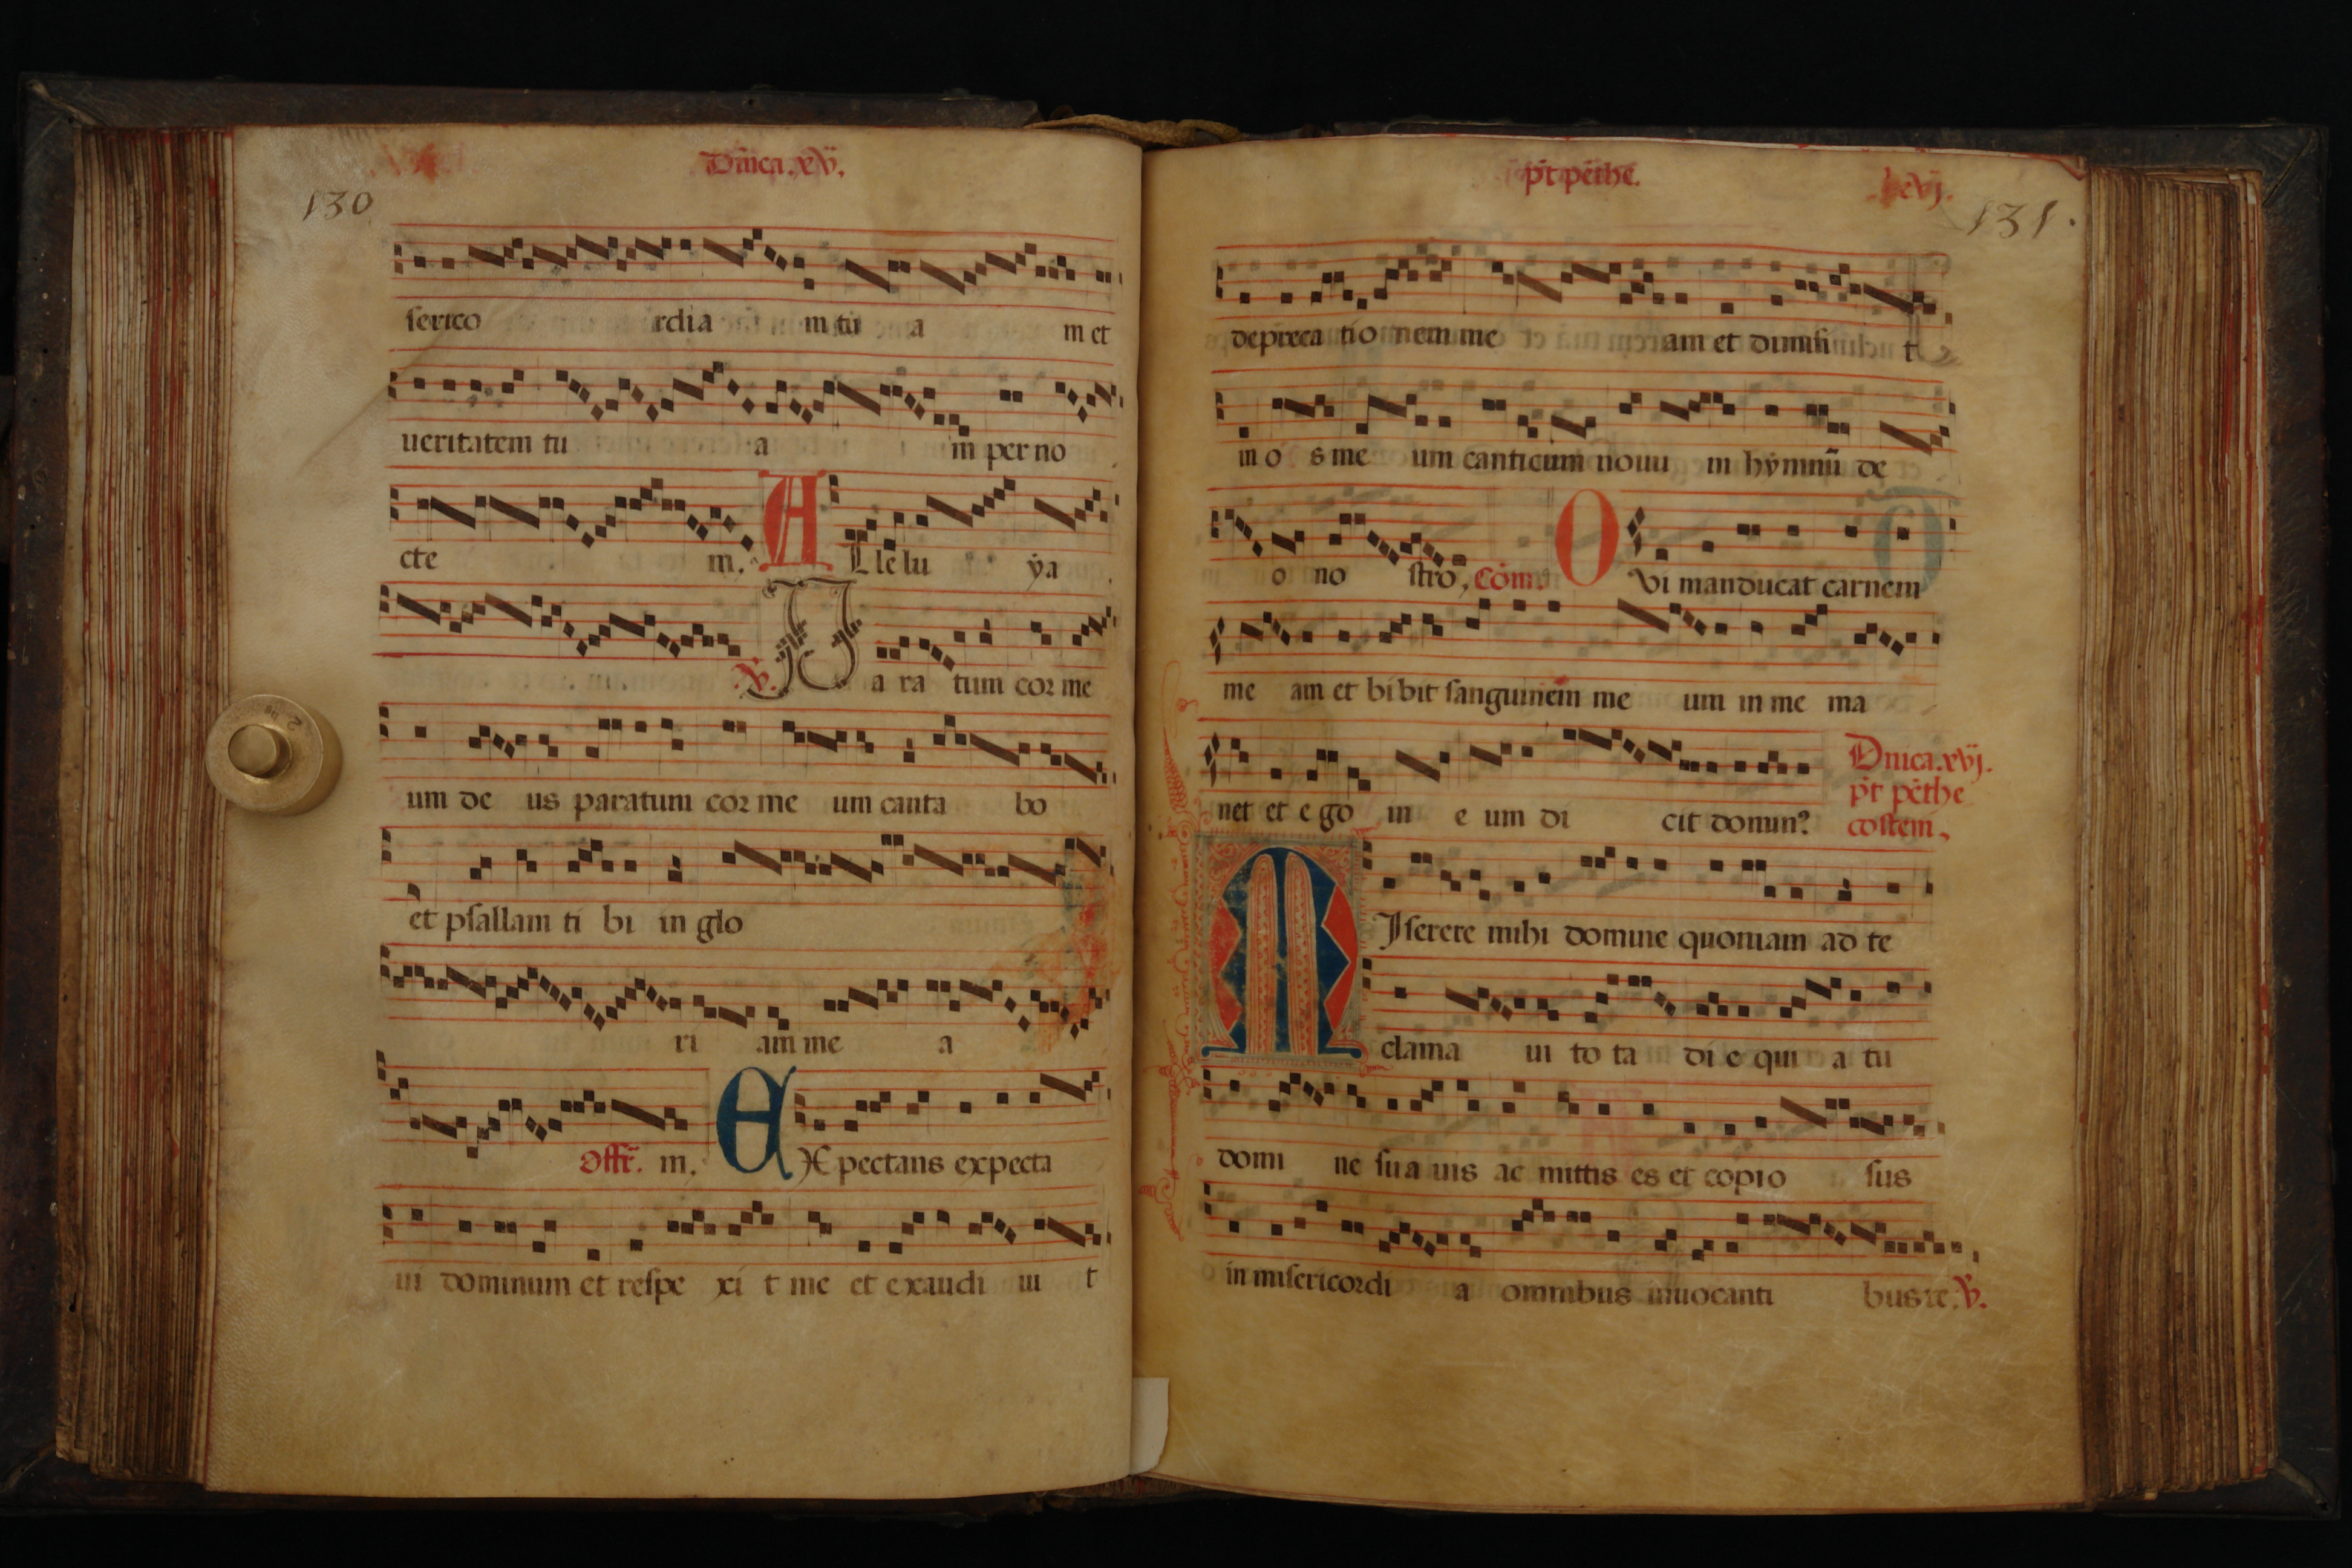 Dñica.xv.
130
serico rdia m tu a m et
ueritatem tu a m per no
cte m. A Lle lu ya
℣. P a ra tum cor me
um de us paratum cor me um canta bo
et psallam ti bi in glo
ri am me a
Offr̄. m. E X pectans expecta
ui dominum et respe xi t me et exaudi ui t
p̄t pēthe.
xvj.
131.
depreca tio nem me am et dimisi t
in o s me um canticum nouu m hymnū de
o no stro, Cōm. Q Vi manducat carnem
me am et bibit sanguinem me um in me ma
net et e go in e um di cit domin?
Dnica.xvj.
p̄t pēthe
costem.
M Iserere mihi domine quoniam ad te
clama ui to ta di e qui a tu
domi ne sua uis ac mittis es et copio sus
in misericordi a omnibus inuocanti bus te. ℣.